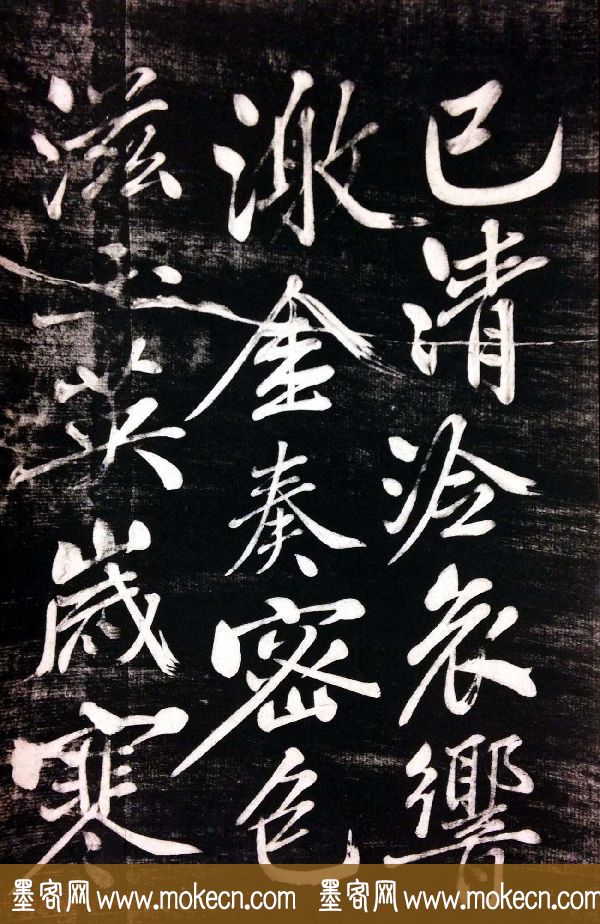 已清泠哀響
激金奏密色
滋玉英歲寒
墨客网 www.mokecn.com 墨客网 www.mokecn.com